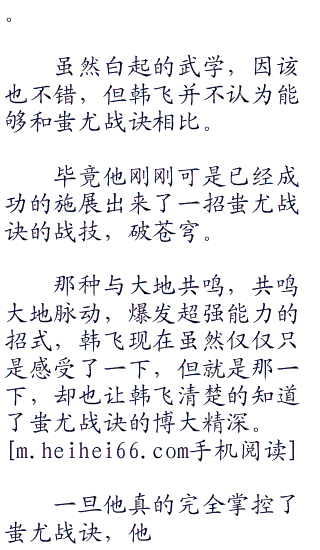 。
虽然白起的武学，因该
也不错，但韩飞并不认为能
够和蚩尤战诀相比。
毕竟他刚刚可是已经成
功的施展出来了一招蚩尤战
诀的战技，破苍穹。
那种与大地共鸣，共鸣
大地脉动，爆发超强能力的
招式，韩飞现在虽然仅仅只
是感受了一下，但就是那一
下，却也让韩飞清楚的知道
了蚩尤战诀的博大精深。
[m.heihei66.com手机阅读]
一旦他真的完全掌控了
蚩尤战诀，他